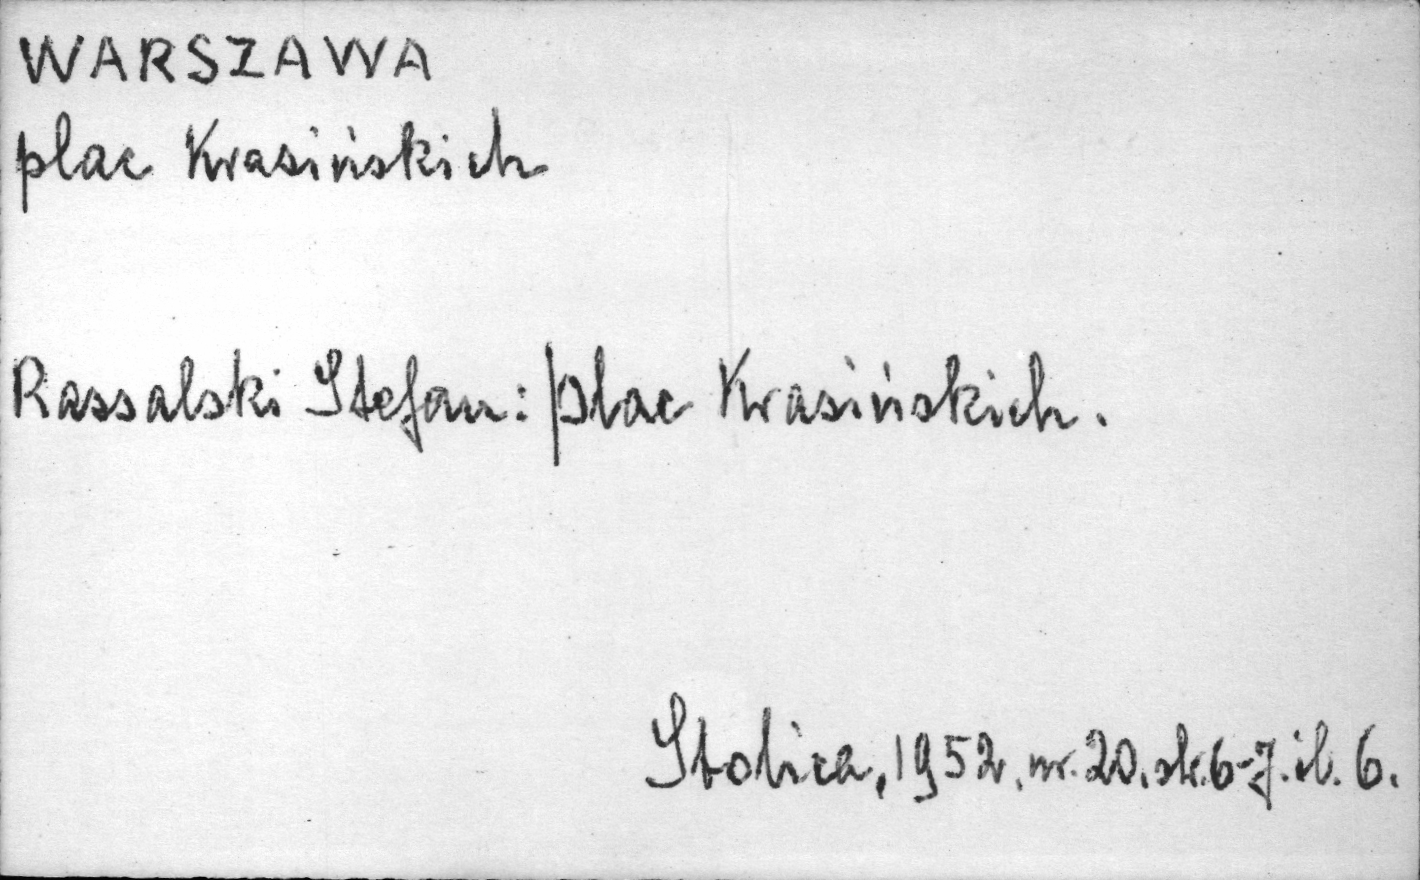 WARSZAWA
plac Krasińskich
Rassalski Stefan: plac Krasińskich.
Stolica, 1952, nr. 20. str. 6-7. il. 6.